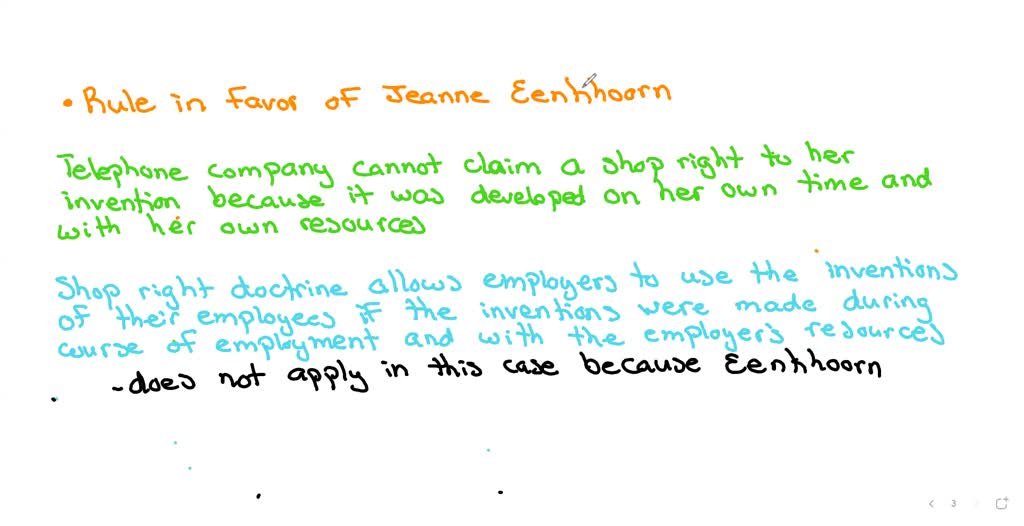 • Rule in favor of Jeanne Eenhhoorn
Telephone company cannot claim a shop right to her
invention because it was developed on her own time and
with her own resources
Shop right doctrine allows employers to use the inventions
of their employees if the inventions were made during
course of employment and with the employer's resources
-does not apply in this case because Eenhhoorn
3